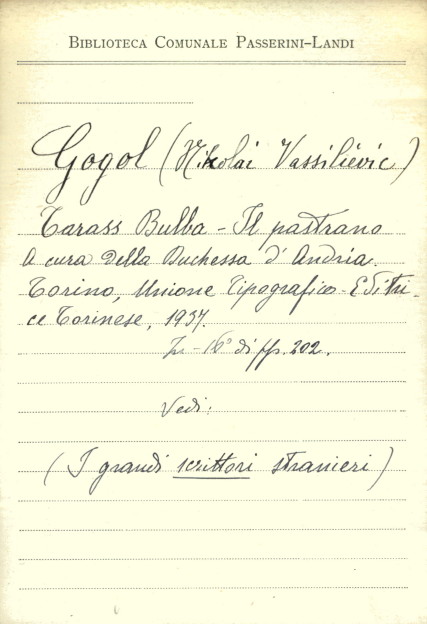 BIBLIOTECA COMUNALE PASSERINI-LANDI
Gogol (Nikolai Vassiliévic)
Tarass Bulba - Il pastrano
A cura della Duchessa d'Andria.
Torino, Unione Tipografico-Editri-
ce Torinese, 1937.
In-16° di pp. 202.
Vedi:
(I grandi scrittori stranieri)